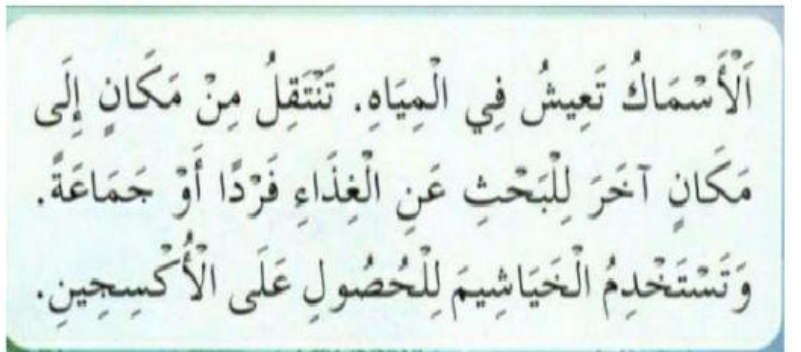 اَلْأَسْمَاكُ تَعِيشُ فِي الْمِيَاهِ. تَنْتَقِلُ مِنْ مَكَانٍ إِلَى
مَكَانٍ آخَرَ لِلْبَحْثِ عَنِ الْغِذَاءِ فَرْدًا أَوْ جَمَاعَةً.
وَتَسْتَخْدِمُ الْخَيَاشِيمَ لِلْحُصُولِ عَلَى الْأُكْسِجِينِ.